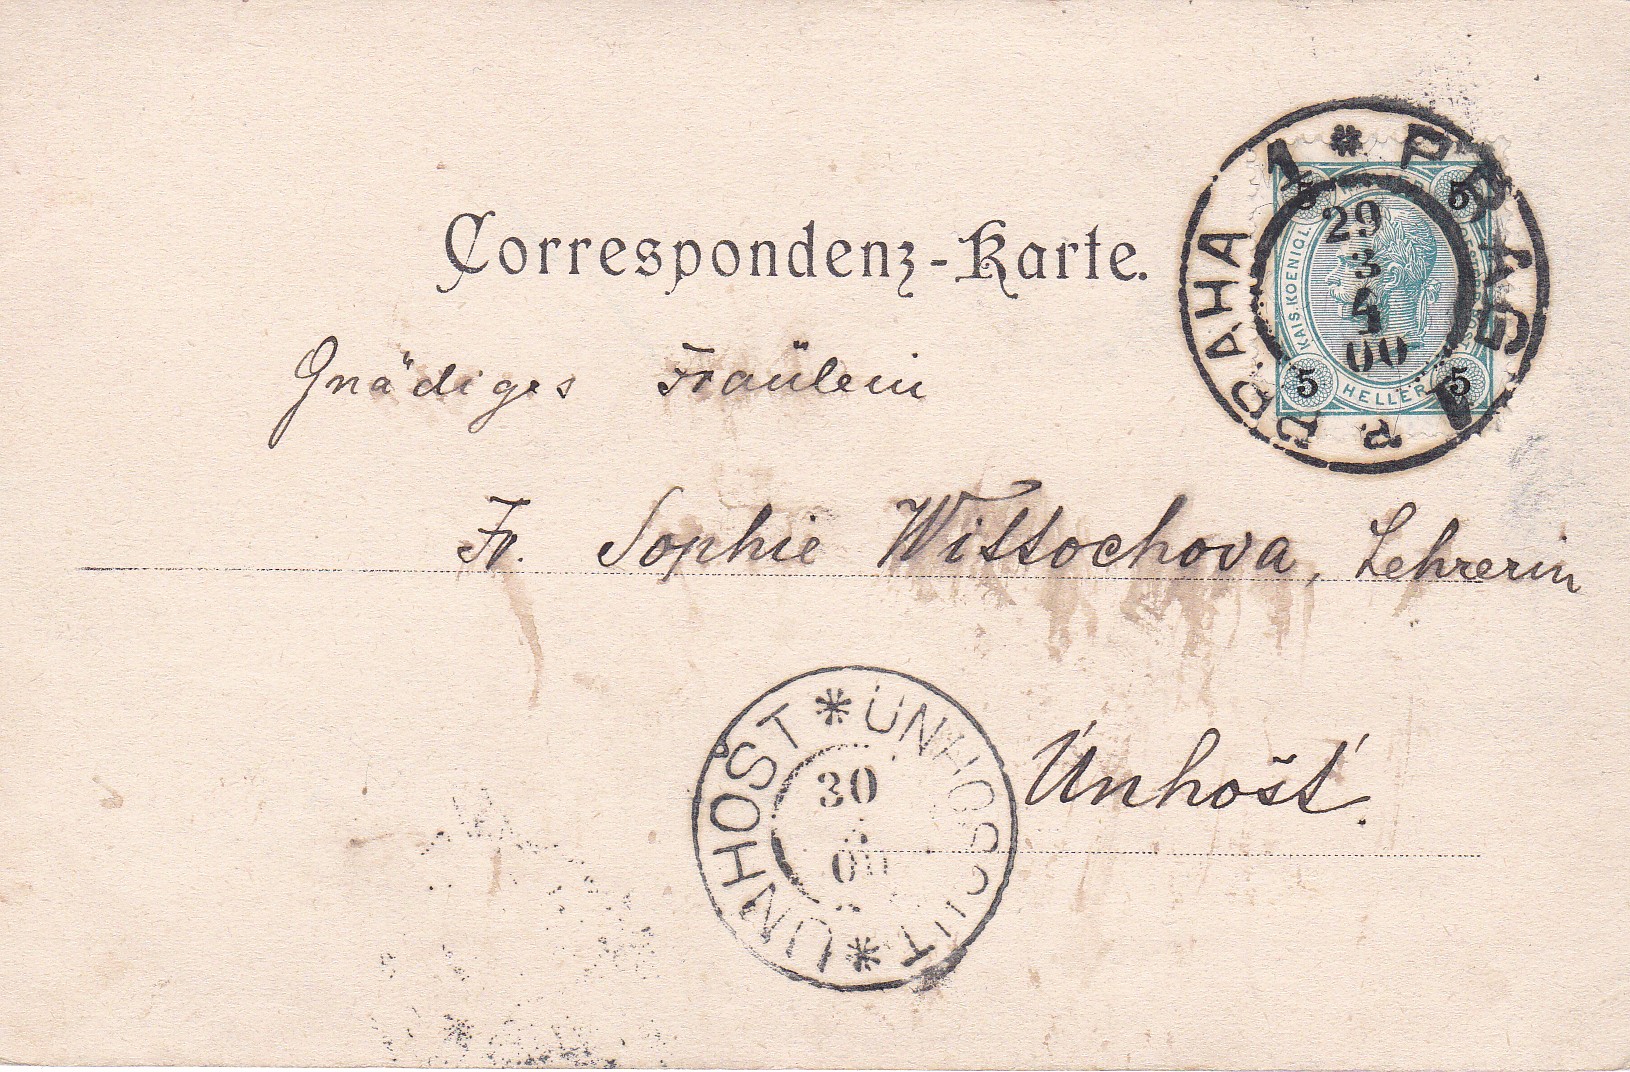 Correspondenz-Karte.
PRAHA 1 * PRAG 1
29
3
4
00
KAIS. KOENIGL.
5 5
5 HELLER 5
Gnädiges Fräulein
Fr. Sophie Wittochova, Lehrerin
Únhošť.
ÚNHOŠT * UNHOSCHT *
30
00